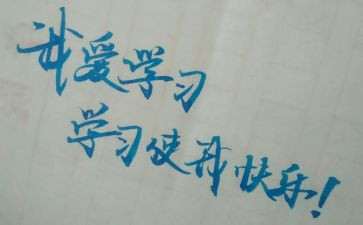 我爱学习
学习使我快乐！